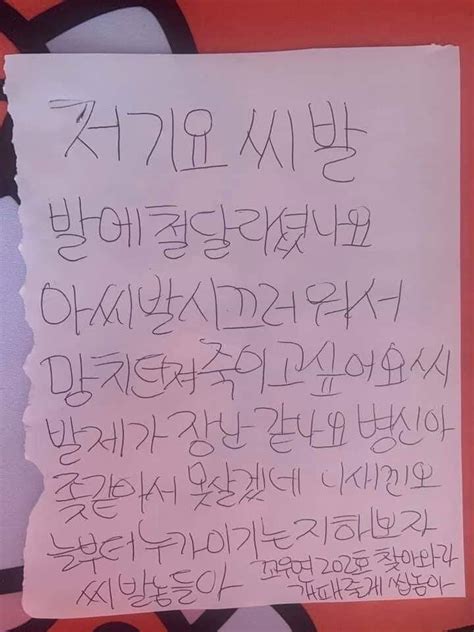 저기요 씨발
발에 철달리셨나요
아 씨발 시끄러워서
망치던져죽이고싶어요 씨
발 제가 장난 같나요 병신아
좆같아서 못살겠네 니새낀 오
늘부터 누가이기는지 하보자
씨발놈들아 꼬우면 202호 찾아와라
개패줄게 씹놈아